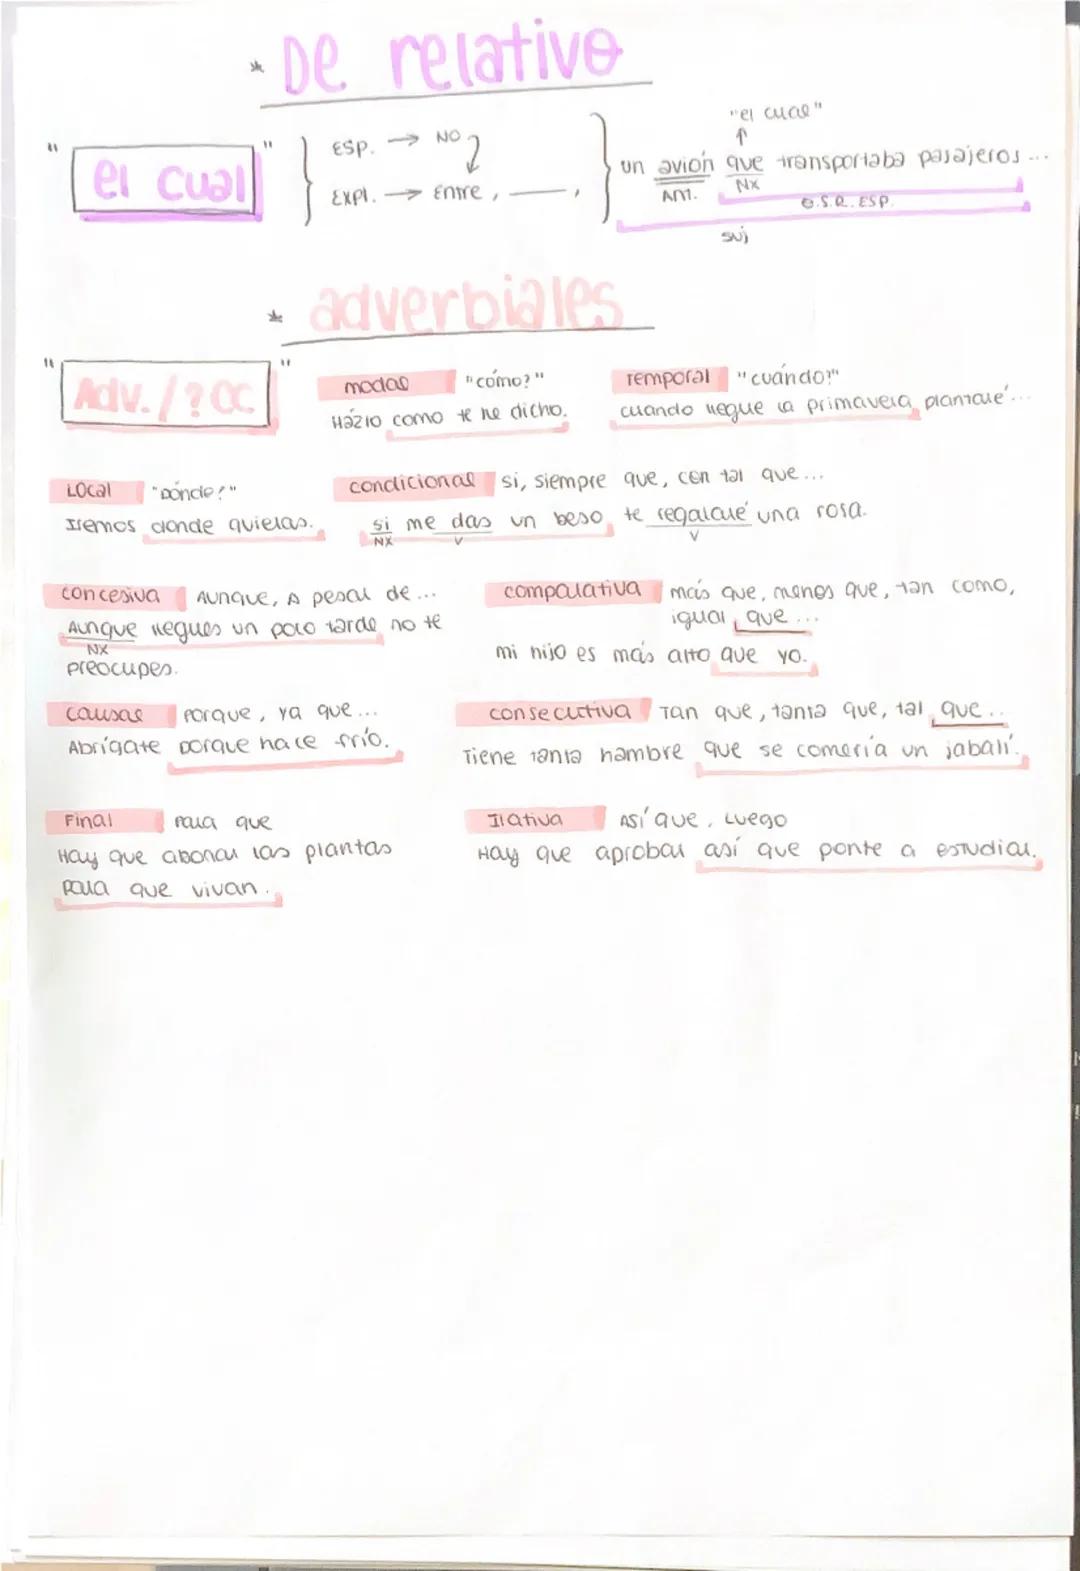 * De relativo
"el cual" } ESP. → NO
EXPl. → Entre , ——— , }
"el cual"
↑
un avión que transportaba pasajeros ...
ANT. NX
O.S.R. ESP.
suj
* adverbiales
"Adv. / ? CC"
modal "cómo?"
Hazlo como te he dicho.
Temporal "cuándo?"
cuando llegue la primavera, plantaré...
Local "Dónde?"
Iremos donde quieras.
condicional si, siempre que, con tal que...
si me das un beso, te regalaré una rosa.
NX V V
concesiva Aunque, A pesar de ...
Aunque llegues un poco tarde, no te
NX
preocupes.
comparativa más que, menos que, tan como,
igual que ...
mi hijo es más alto que yo.
causal porque, ya que ...
Abrígate porque hace frío.
consecutiva Tan que, tanta que, tal que ..
Tiene tanta hambre que se comería un jabalí.
Final para que
Hay que abonar las plantas
para que vivan.
Ilativa Así que, Luego
Hay que aprobar así que ponte a estudiar.